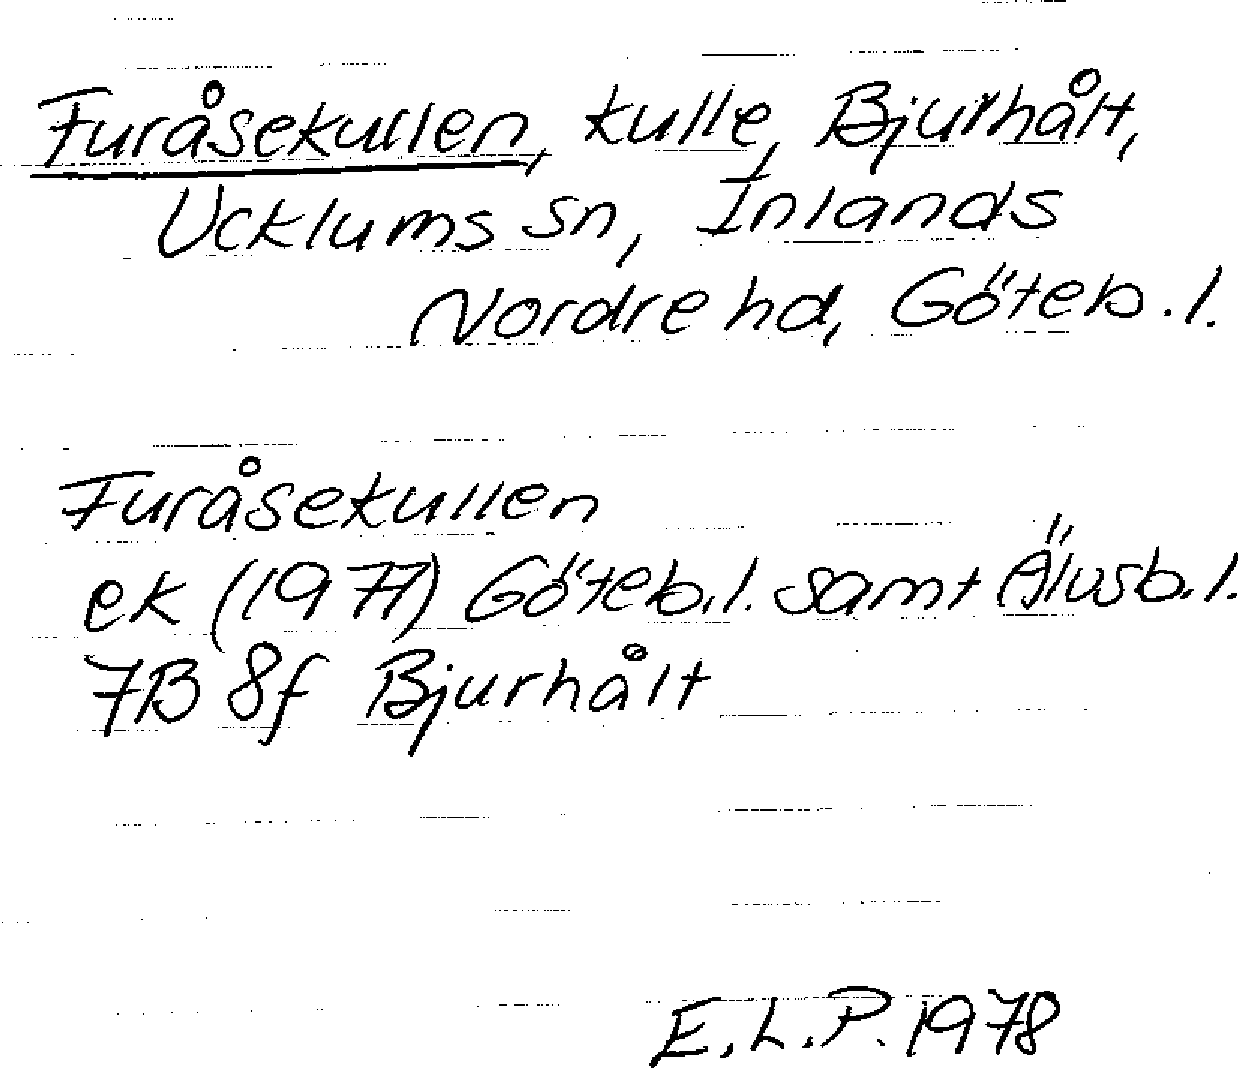 Furåsekullen, kulle, Bjurhålt,
Ucklums sn, Inlands
Nordre hd, Göteb.l.
Furåsekullen
ek (1977) Göteb.l. samt Älvsb.l.
7B 8f Bjurhålt
E.L.P. 1978